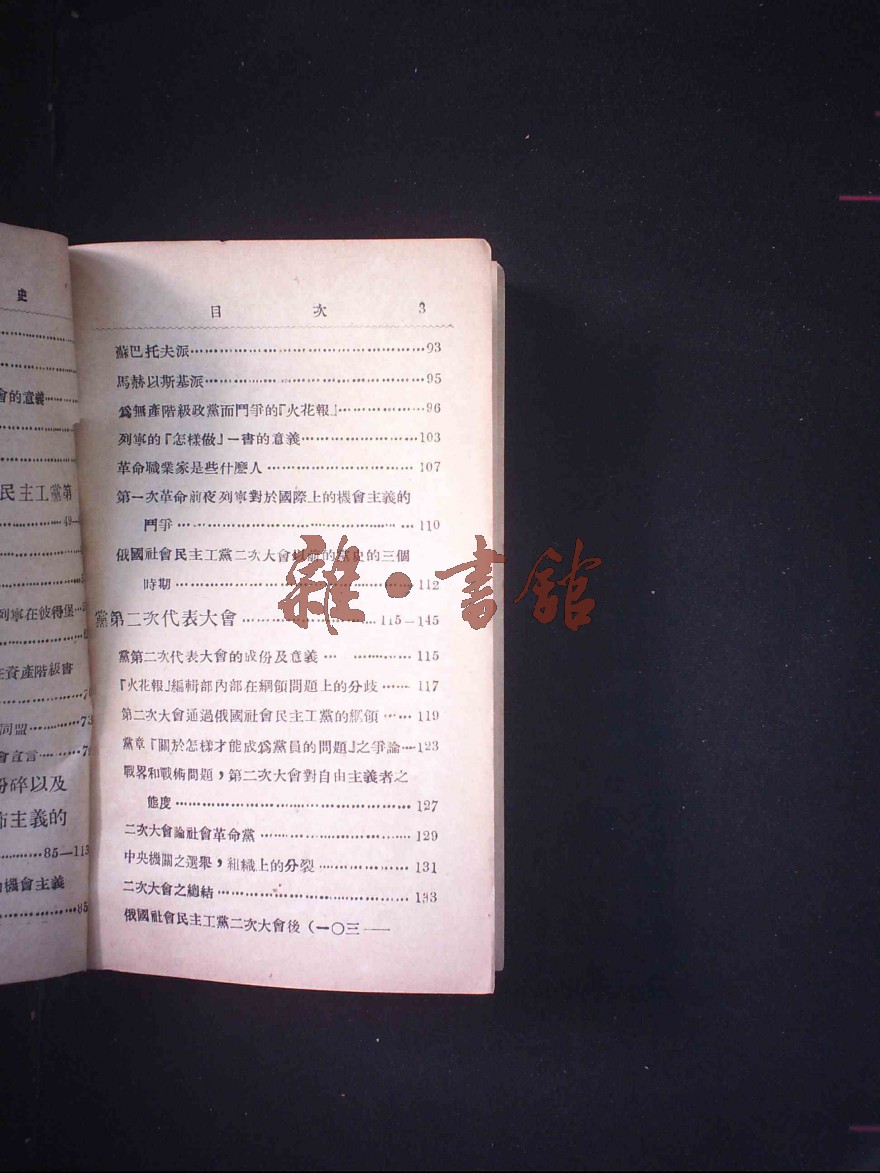 史
會的意義……
民主工黨第
列寧在彼得堡
資產階級書
同盟……73
會宣言……
粉碎以及
主義的
……85—113
機會主義
……85
目 次 3
蘇巴托夫派……93
馬赫以斯基派……95
爲無產階級政黨而鬥爭的『火花報』……96
列寧的『怎樣做』一書的意義……103
革命職業家是些什麽人……107
第一次革命前夜列寧對於國際上的機會主義的
鬥爭……110
俄國社會民主工黨二次大會以前的黨史的三個
時期……112
黨第二次代表大會……115—145
黨第二次代表大會的成份及意義……115
『火花報』編輯部內部在綱領問題上的分歧……117
第二次大會通過俄國社會民主工黨的綱領……119
黨章『關於怎樣才能成爲黨員的問題』之爭論……123
戰畧和戰術問題，第二次大會對自由主義者之
態度……127
二次大會論社會革命黨……129
中央機關之選舉，組織上的分裂……131
二次大會之總結……133
俄國社會民主工黨二次大會後（一〇三——
雜·書館